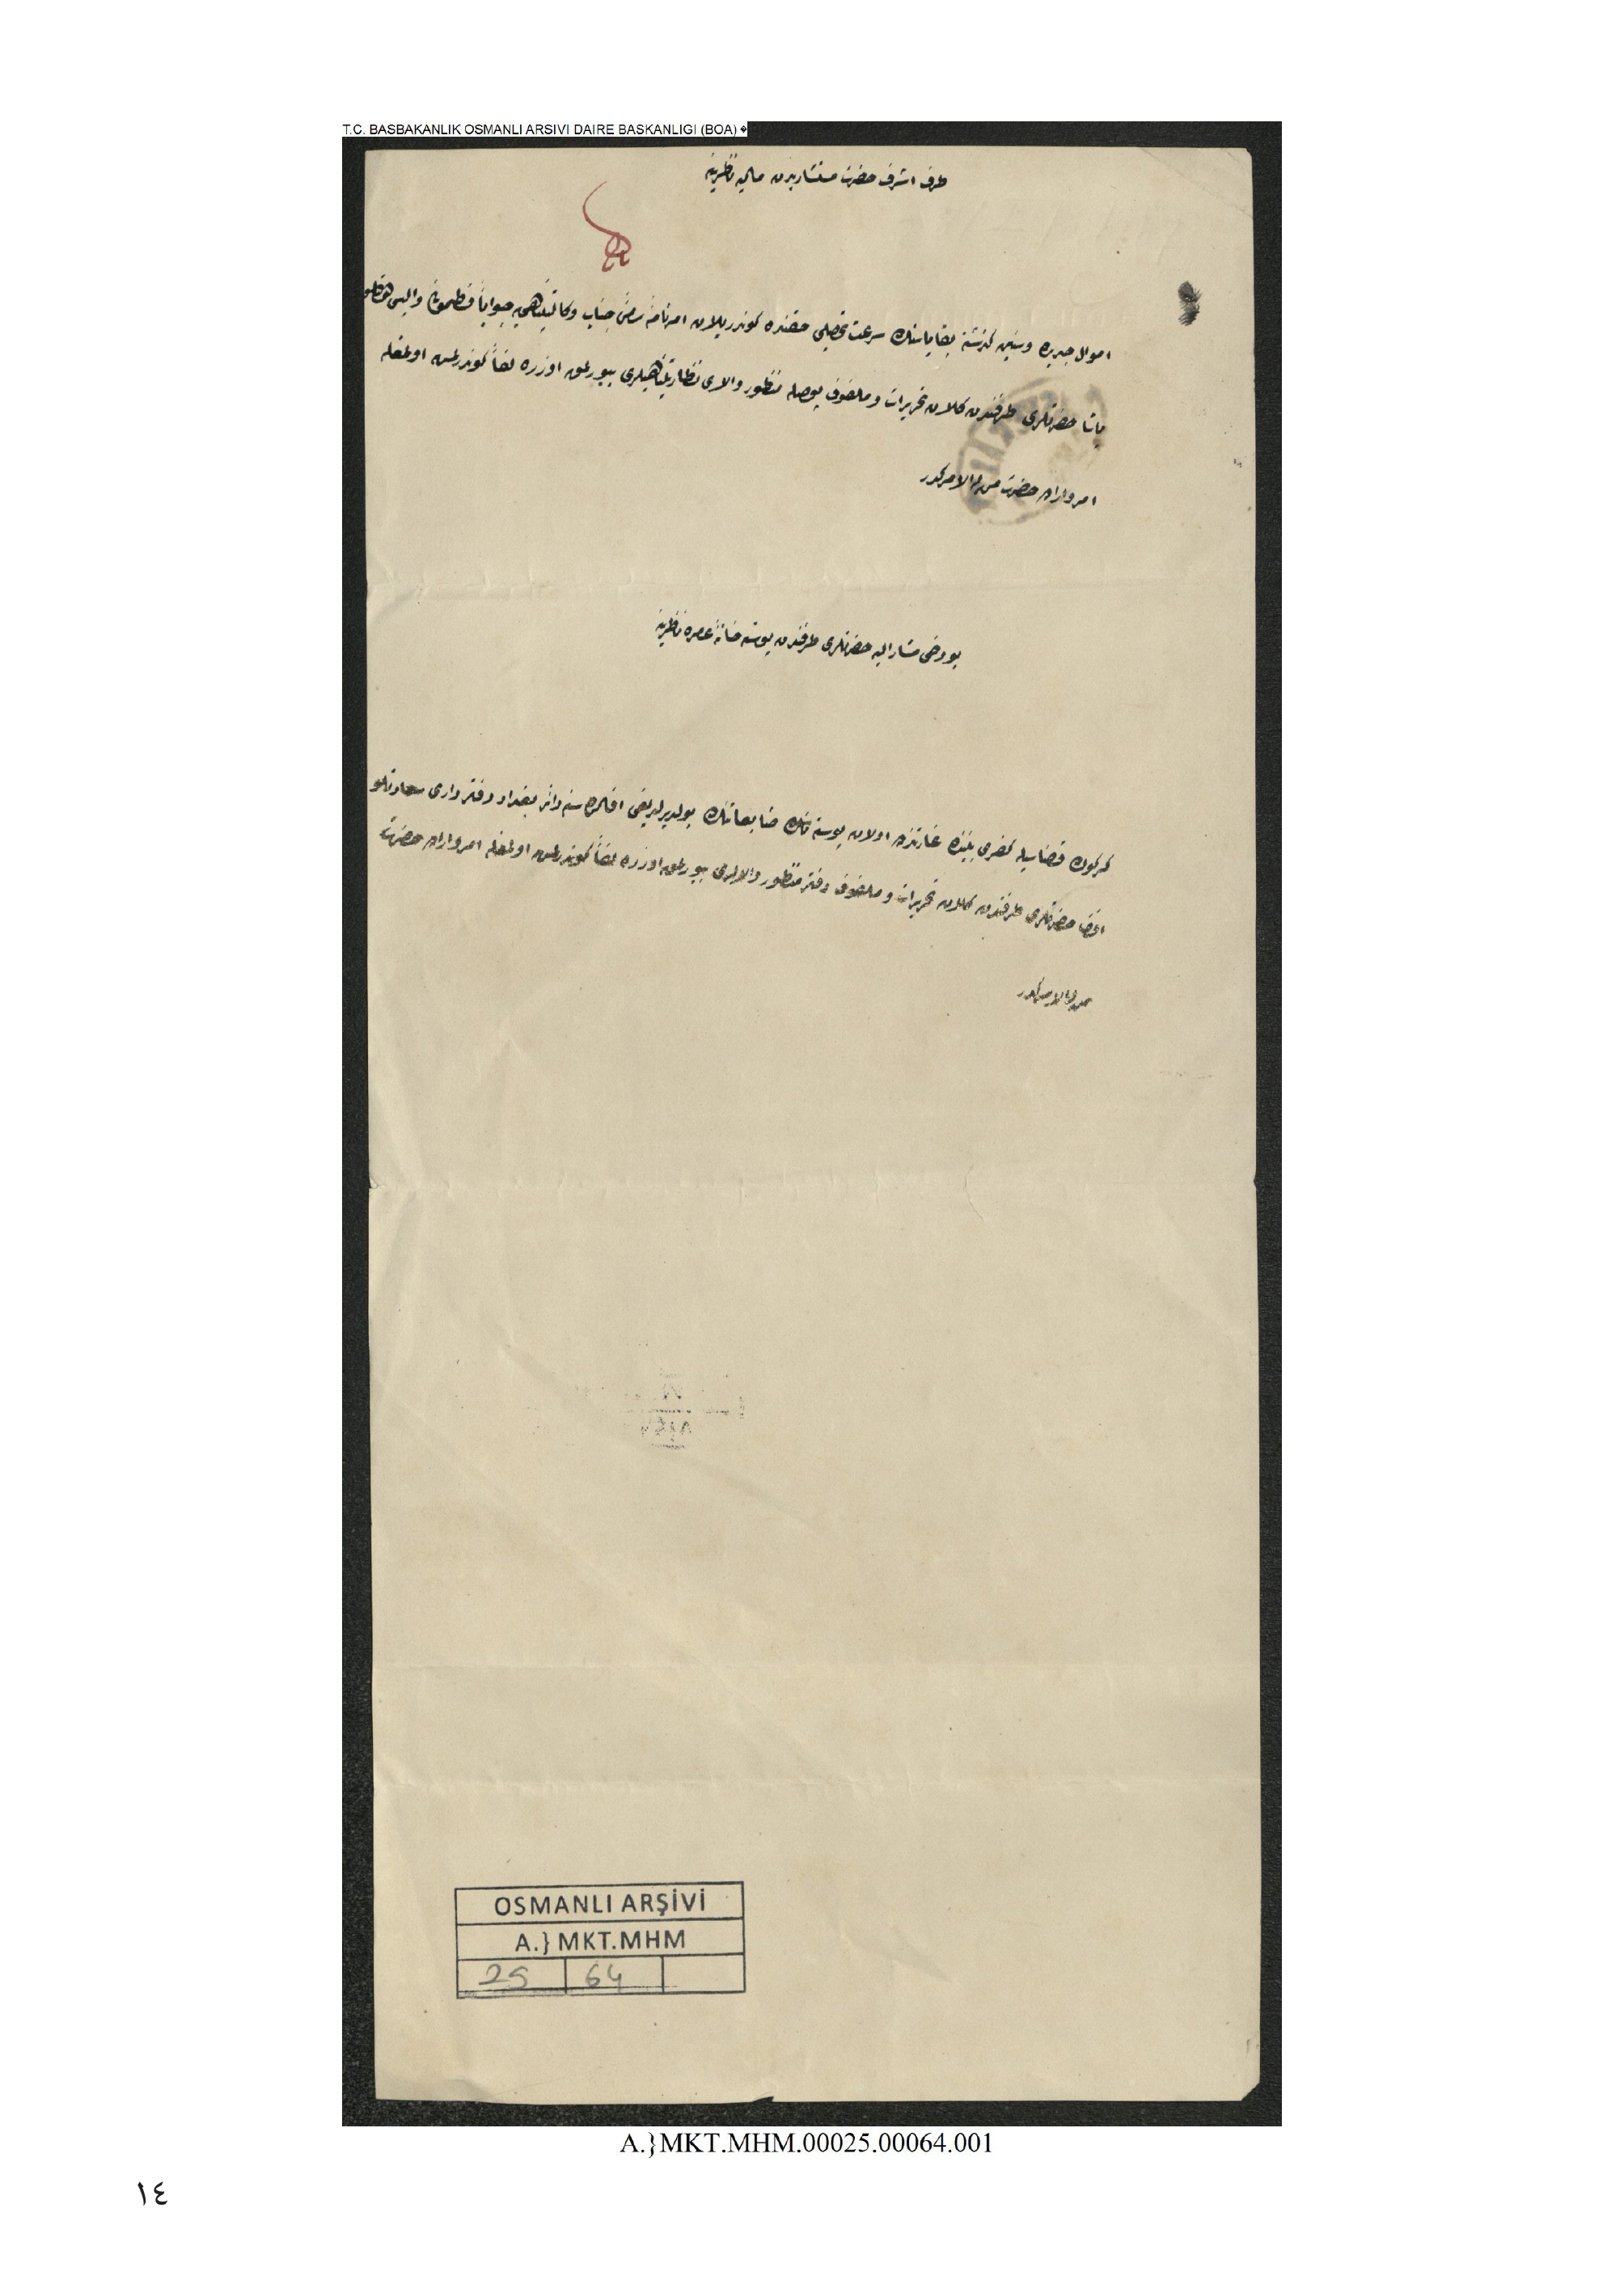 T.C. BASBAKANLIK OSMANLI ARSIVI DAIRE BASKANLIGI (BOA)
طرف اشرف حضرت مستشاریدن مالیه ناظرینه
اموال جدیده وسنین كذشته بقایاسنك سرعت تحصیلی حقنده كوندریلان امرنامهٔ سامئ جناب وكالتپناهی یه جواباً قسطمونی والیسی عطوفتلو
پاشا حضرتلری طرفندن كلان تحریرات وملفوف پوصله منظور والای نظارتپناهیلری بیورلمق اوزره لفاً كوندرلمش اولمغله
امر واراده حضرت من له الامركدر
بو دخی مشار الیه حضرتلری طرفندن پوسته خانهٔ عامره ناظرینه
كركوك قضاسیله كفری بیننده غارتزده اولان پوسته نك ضایعاتنك بولدیرلدیغی افاده سنه دائر بغداد دفترداری سعادتلو
افندی حضرتلری طرفندن كلان تحریرات وملفوف دفتر منظور والالری بیورلمق اوزره لفاً كوندرلمش اولمغله امر واراده حضرت
من له الامركدر
OSMANLI ARŞİVİ
A.} MKT.MHM
25 64
A.}MKT.MHM.00025.00064.001
١٤